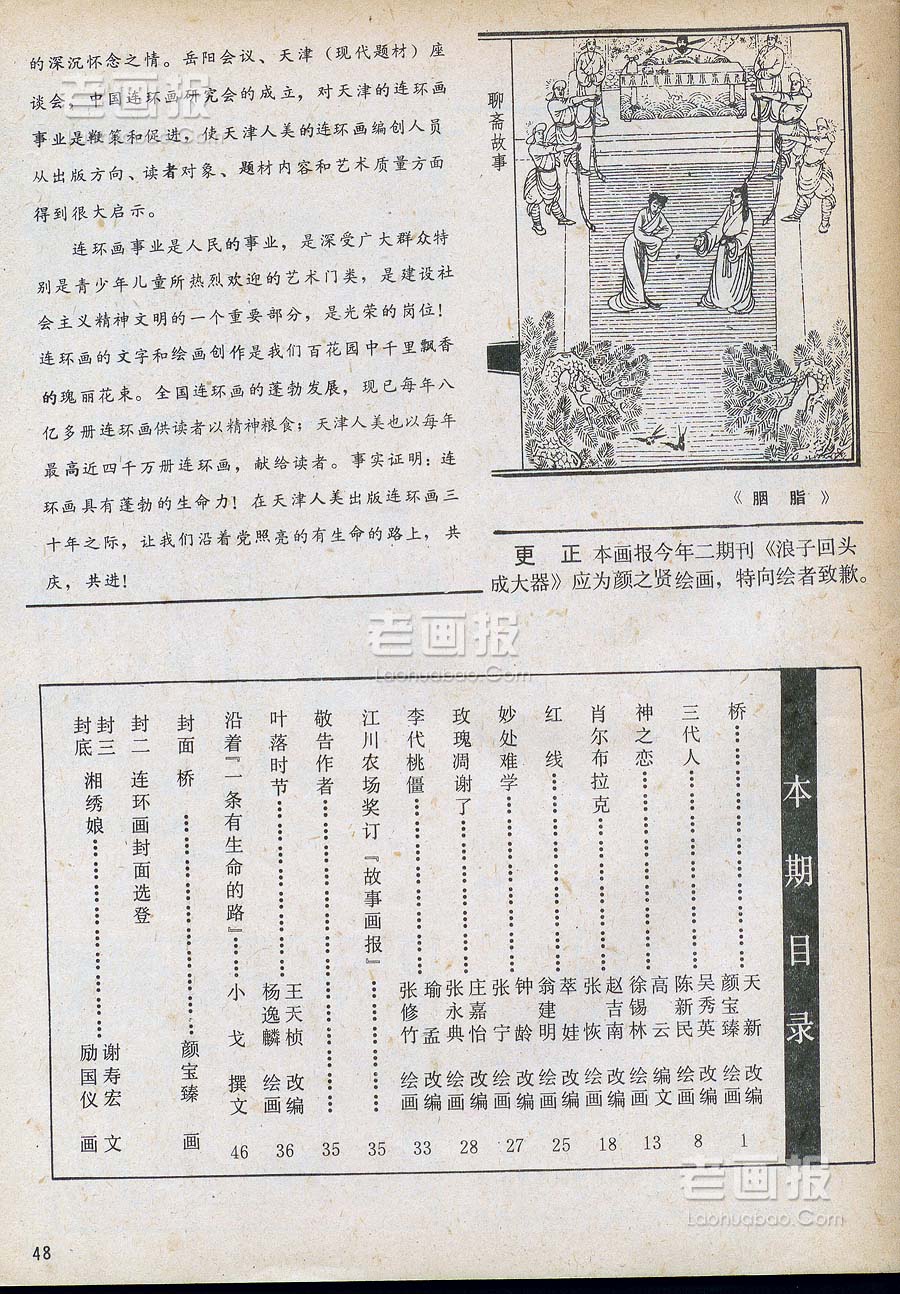 的深沉怀念之情。岳阳会议、天津（现代题材）座
谈会，中国连环画研究会的成立，对天津的连环画
事业是鞭策和促进，使天津人美的连环画编创人员
从出版方向、读者对象、题材内容和艺术质量方面
得到很大启示。
连环画事业是人民的事业，是深受广大群众特
别是青少年儿童所热烈欢迎的艺术门类，是建设社
会主义精神文明的一个重要部分，是光荣的岗位！
连环画的文字和绘画创作是我们百花园中千里飘香
的瑰丽花束。全国连环画的蓬勃发展，现已每年八
亿多册连环画供读者以精神粮食；天津人美也以每年
最高近四千万册连环画，献给读者。事实证明：连
环画具有蓬勃的生命力！在天津人美出版连环画三
十年之际，让我们沿着党照亮的有生命的路上，共
庆，共进！
聊斋故事
《胭脂》
更正 本画报今年二期刊《浪子回头
成大器》应为颜之贤绘画，特向绘者致歉。
本期目录
桥……天新 改编 颜宝臻 绘画 1
三代人……吴秀英 改编 陈新民 绘画 8
神之恋……高云 编文 徐锡林 绘画 13
肖尔布拉克……赵吉南 改编 张恢 绘画 18
红线……萃娃 改编 翁建明 绘画 25
妙处难学……钟龄 改编 张宁 绘画 27
玫瑰凋谢了……庄嘉怡 改编 张永典 绘画 28
李代桃僵……瑜孟 改编 张修竹 绘画 33
江川农场奖订『故事画报』……35
敬告作者……35
叶落时节……王天桢 改编 杨逸麟 绘画 36
沿着『一条有生命的路』……小戈 撰文 46
封面 桥……颜宝臻 画
封二 连环画封面选登
封三
封底 湘绣娘……谢寿宏 文 励国仪 画
48
老画报
Laohuabao.Com
老画报
Laohuabao.Com
老画报
Laohuabao.Com